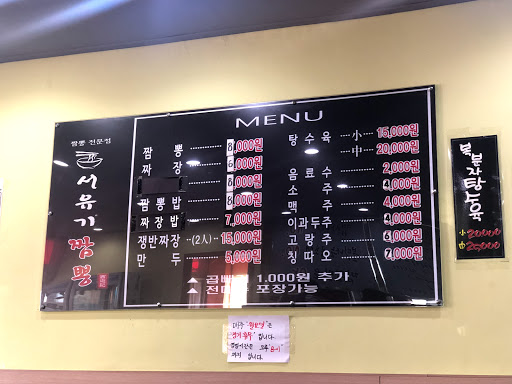 MENU
짬뽕 전문점
서유기짬뽕
짬 뽕 8,000원
짜 장 6,000원
8,000원
짬뽕밥 8,000원
짜장밥 7,000원
쟁반짜장 (2人) 15,000원
만 두 5,000원
탕수육 小 15,000원
中 20,000원
음료수 2,000원
소 주 4,000원
맥 주 4,000원
이과두주 4,000원
고량주 6,000원
칭따오 7,000원
▲ 곱빼기 1,000원 추가
▲ 전메뉴 포장가능
복분자탕수육
小 20000
中 25000
매주 "월요일"은
정기휴무 입니다.
영업시간은 오후
까지 입니다.